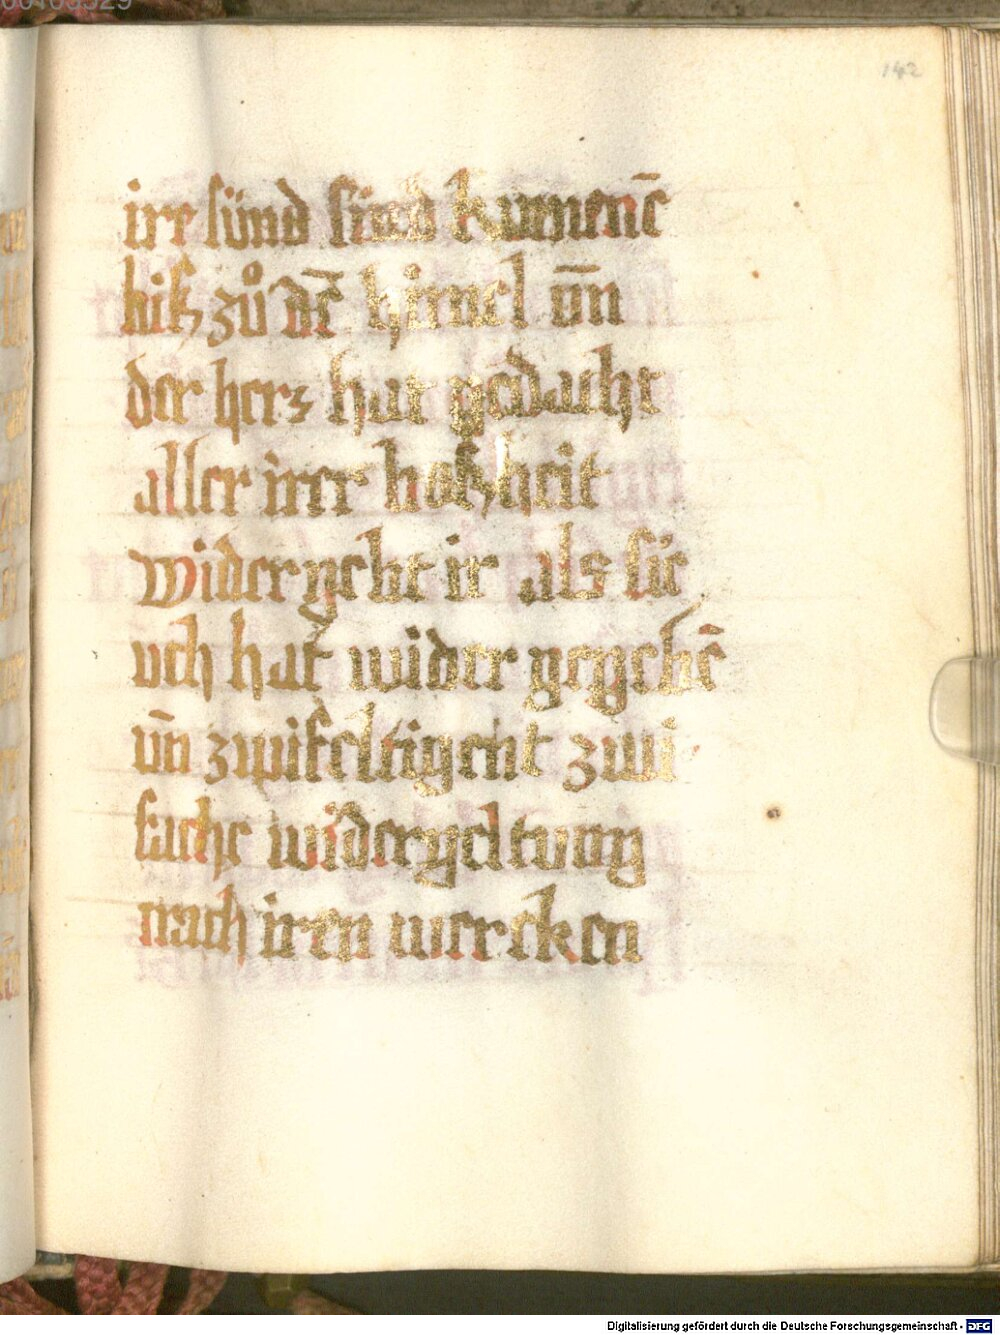 142
ire sünd sind kumenē
biß zů dē himel vn̄
der herz hat gedacht
aller irer boßheit
widergebt ir als sie
vch hat wider gegebē
vn̄ zwifeltigent zwi
fache widergeltung
nach iren wercken
Digitalisierung gefördert durch die Deutsche Forschungsgemeinschaft - DFG